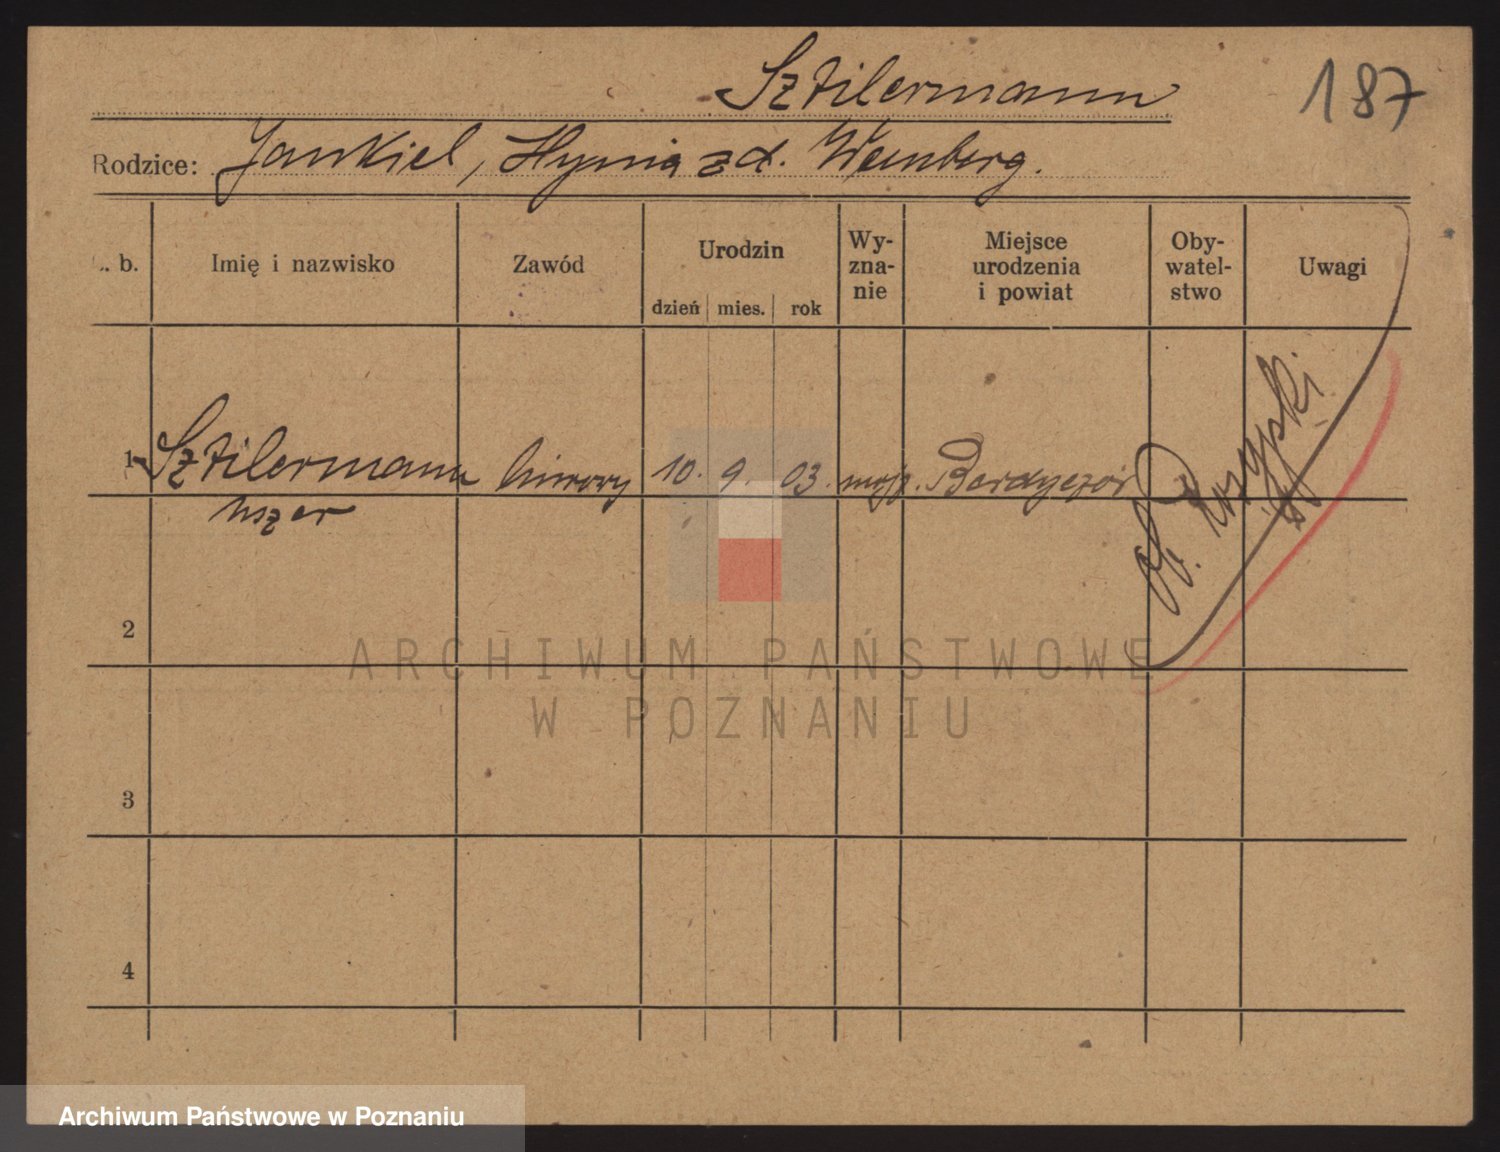 Sztilermann
187
Rodzice: Jankiel, Hynia zd. Weinberg.
. b. Imię i nazwisko Zawód Urodzin dzień mies. rok Wy-zna-nie Miejsce urodzenia i powiat Oby-watel-stwo Uwagi
1 Sztilermann 10. 9. 03. mojż. Berdyczów
Uszer
2
3
4
ARCHIWUM PAŃSTWOWE
W POZNANIU
Archiwum Państwowe w Poznaniu